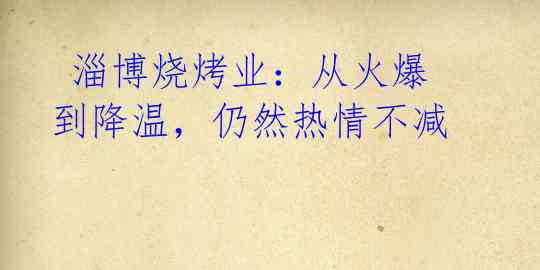 淄博烧烤业：从火爆
到降温，仍然热情不减